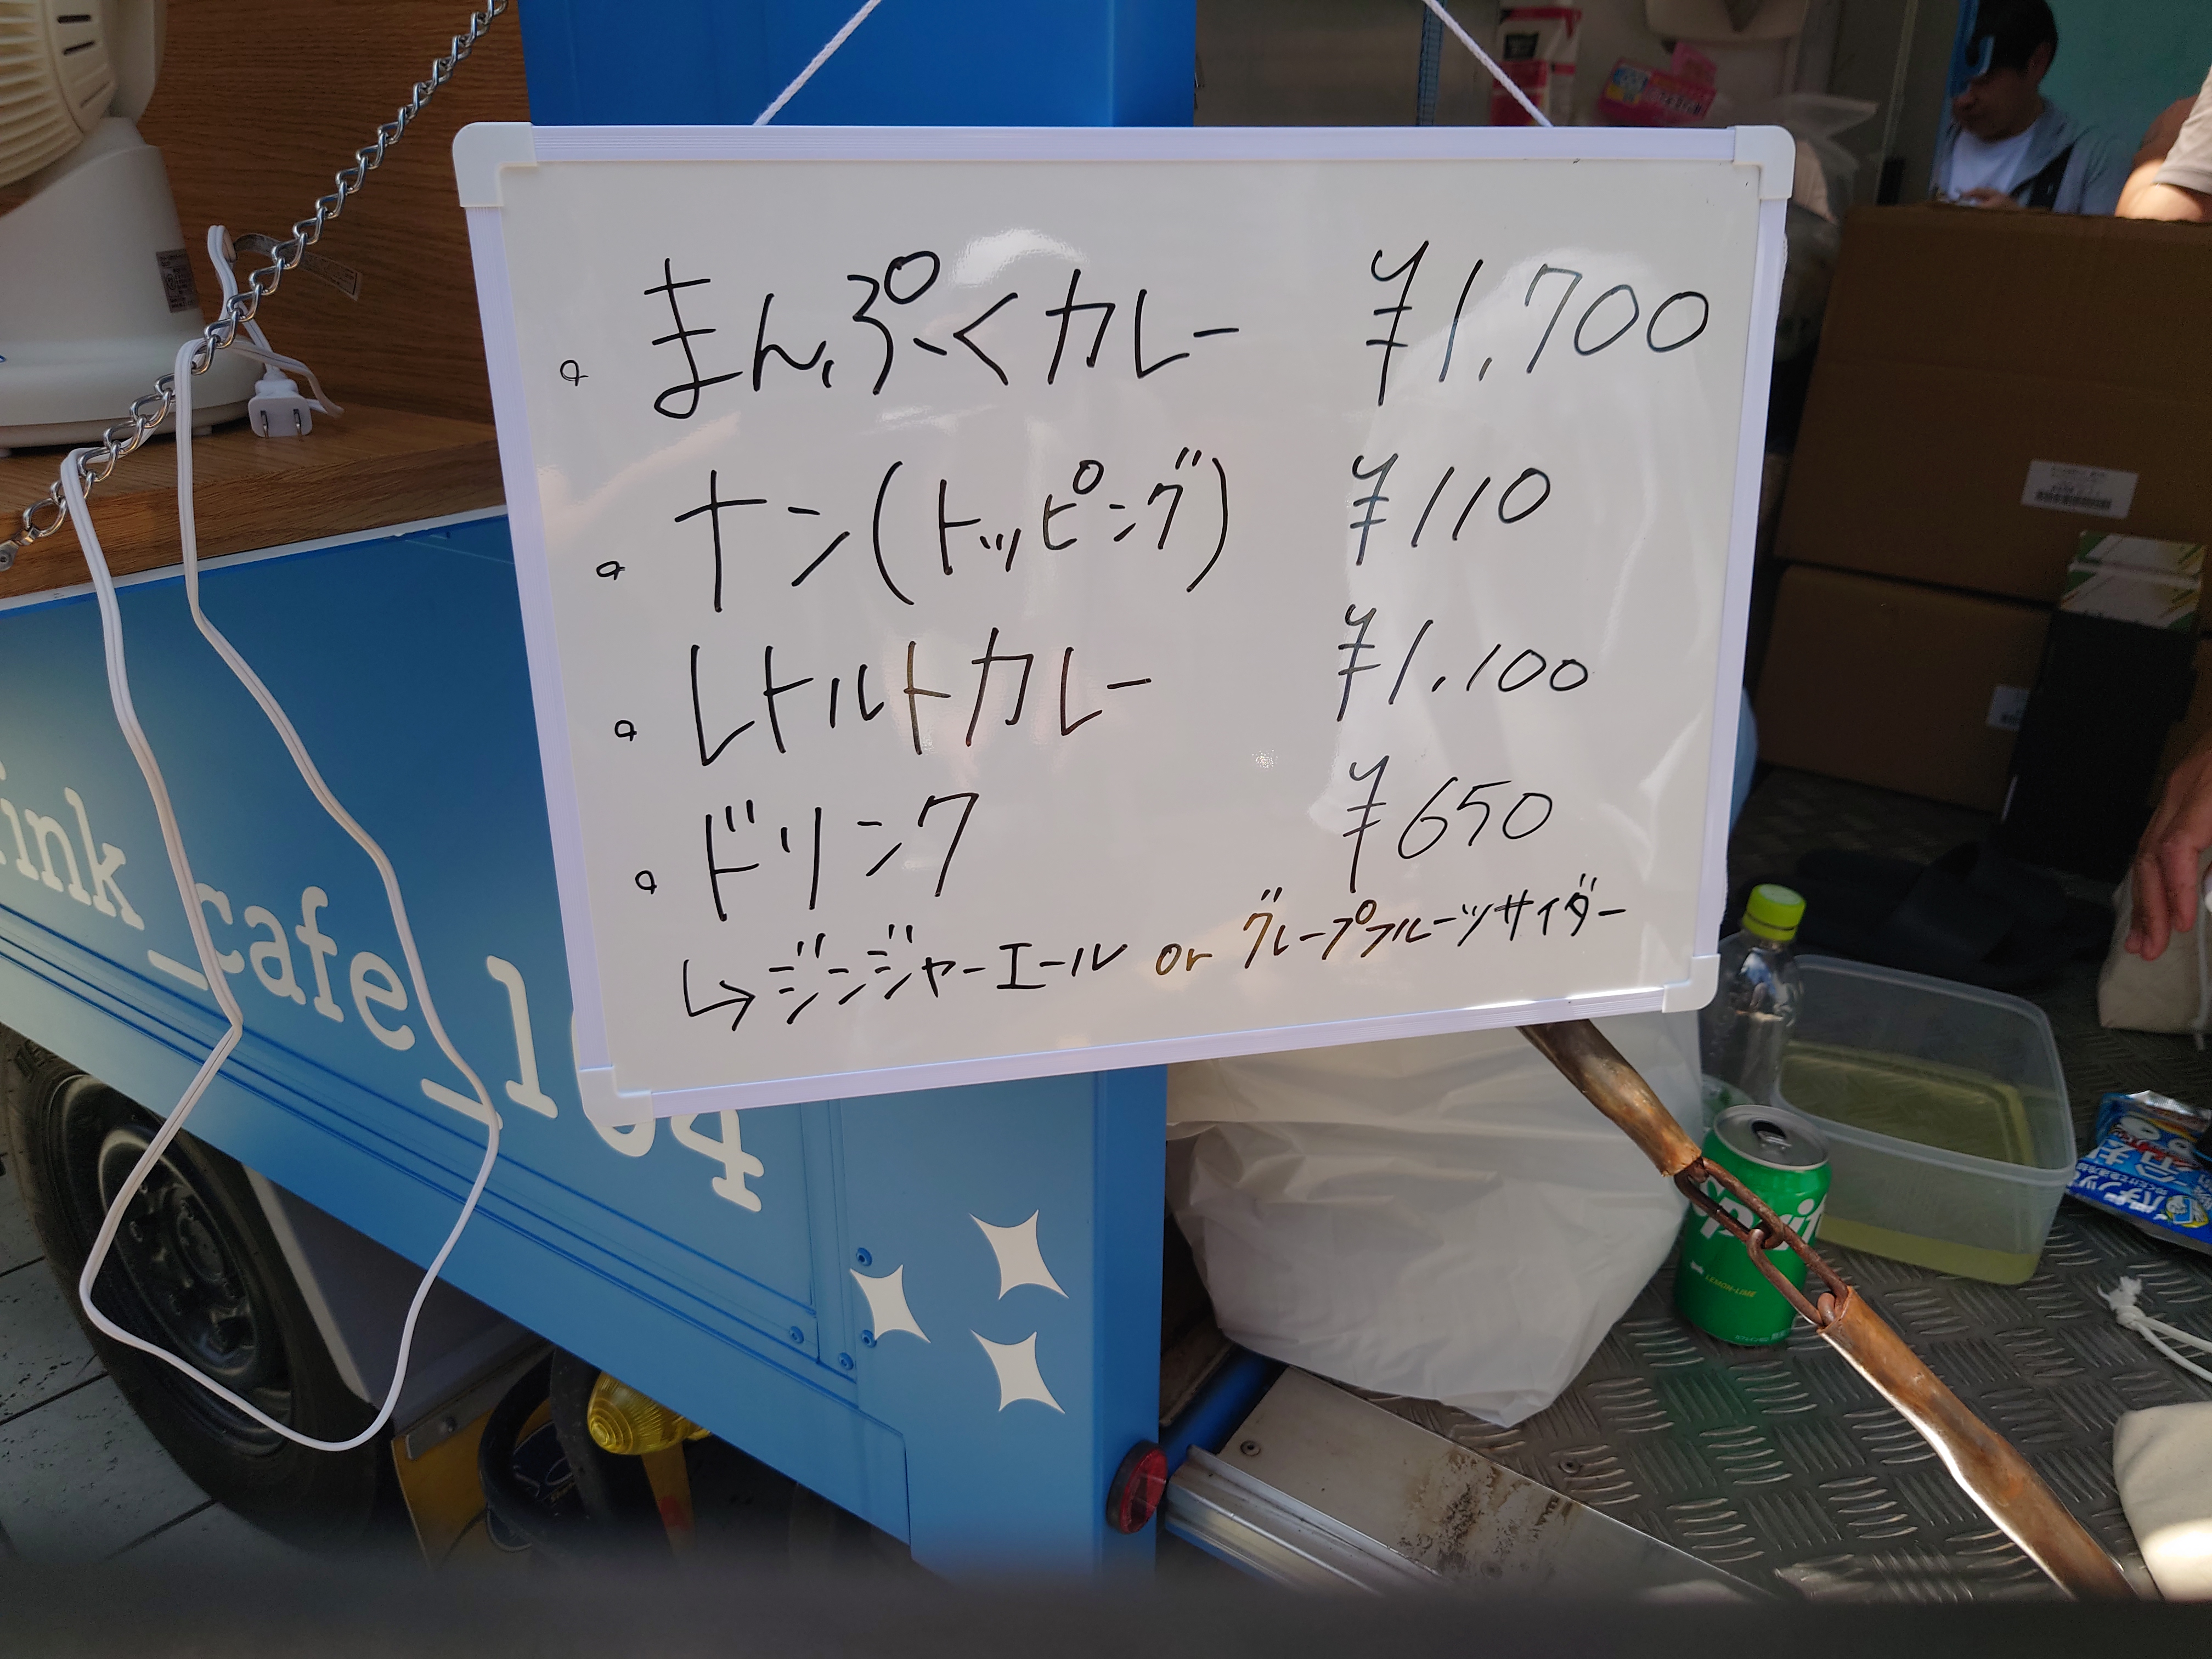 まんぷくカレー ¥1,700
ナン(トッピング) ¥110
レトルトカレー ¥1,100
ドリンク ¥650
↳ジンジャーエール or グレープフルーツサイダー
ink_cafe_1
04
Sprit
LEMON-LIME